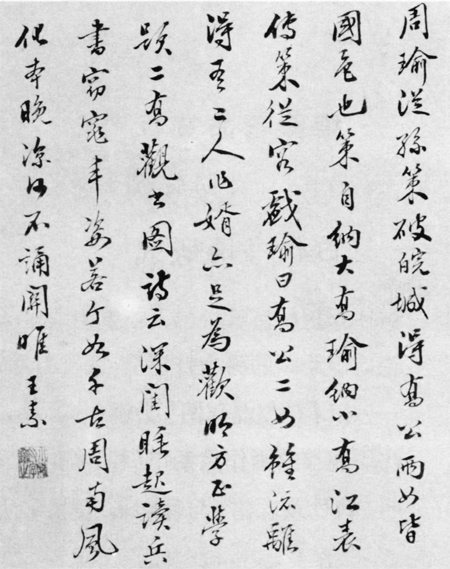 周瑜從孫策破皖城得喬公兩女皆
國色也策自納大喬瑜納小喬江表
傳策從容戲瑜曰喬公二女雖流離
得吾二人作婿亦足為歡明方正學
題二喬觀書圖詩云深閨睡起讀兵
書窈窕丰姿若个如千古周南風
化本晚涼何不誦關雎 王素